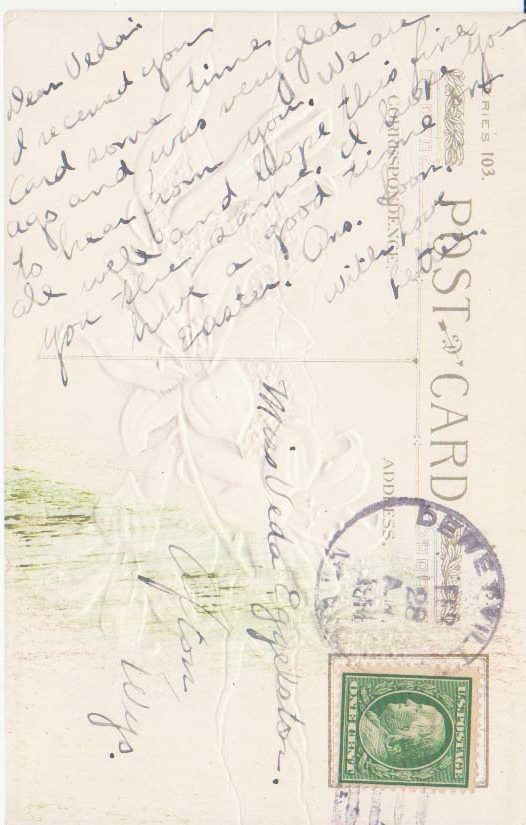 SERIES 103.
POST CARD
CORRESPONDENCE.
ADDRESS.
Dear Veda:
I received your
card some time
ago and was very glad
to hear from you. We are
all well and hope this fine
you the same. I
have a good time
Easter. Ans. soon.
with love
Miss Veda Eggelston.
Afton
Wyo.
DEWEYVIL
28
A
1911
U.S. POSTAGE
ONE CENT